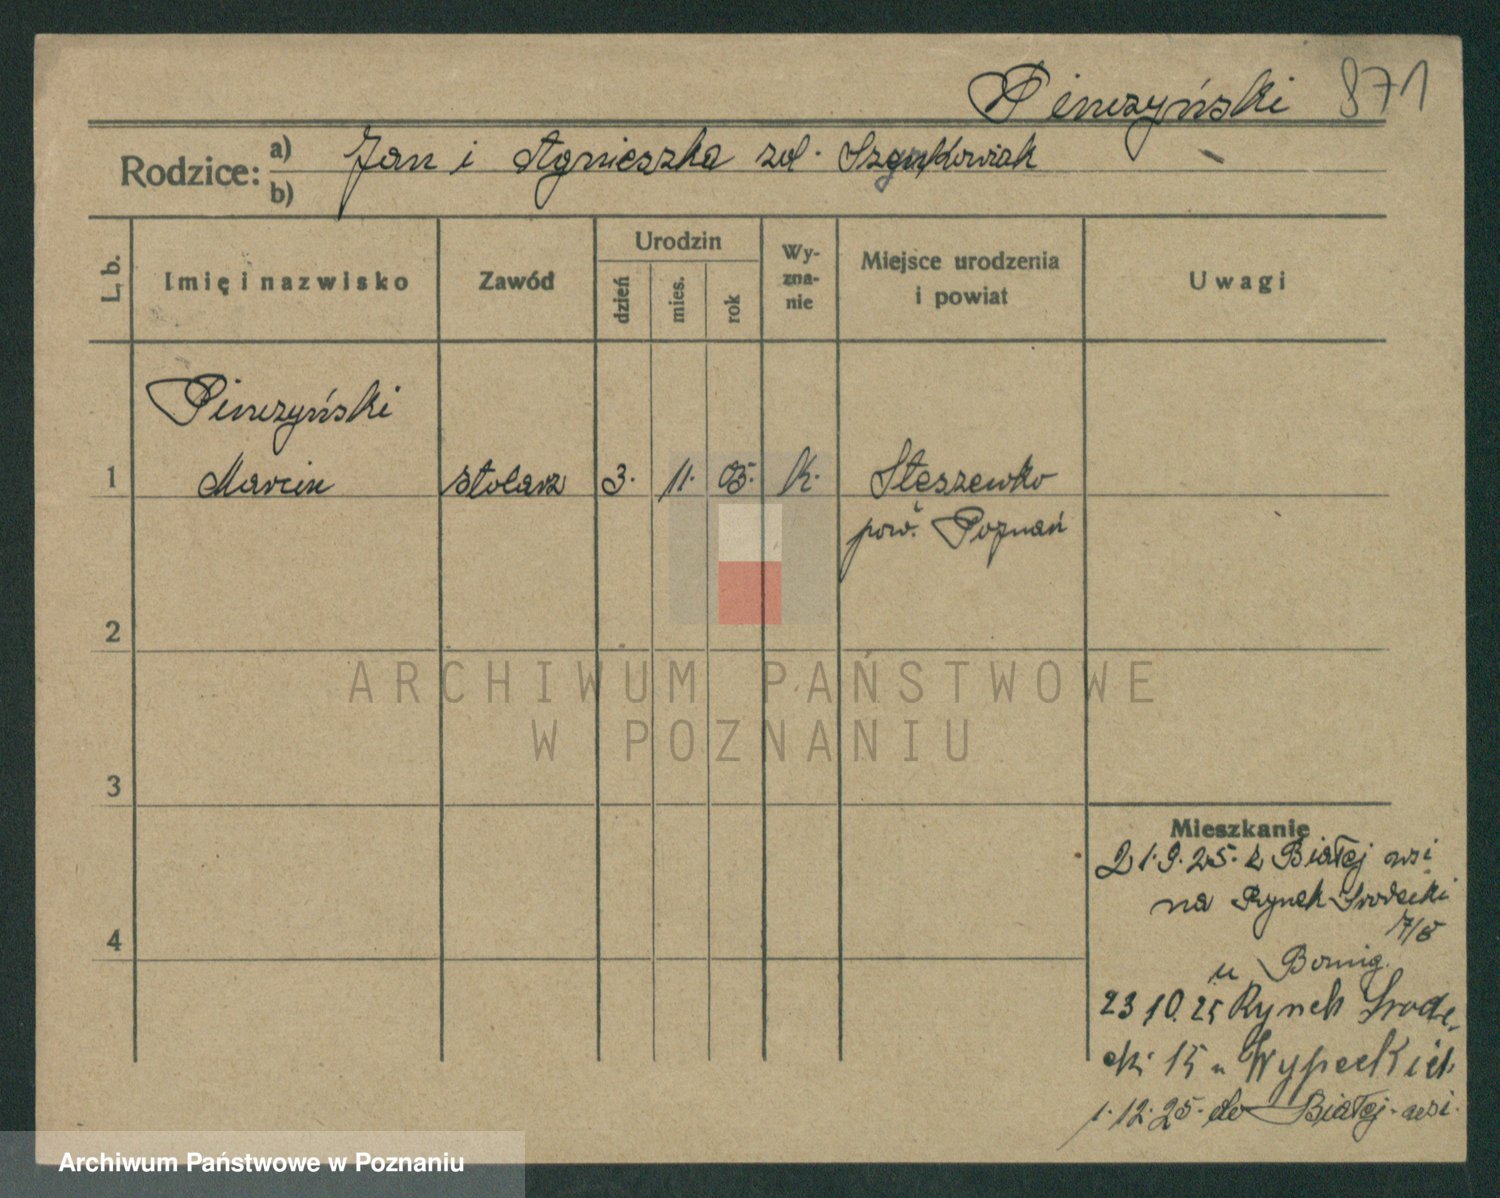 Pinczyński 871
Rodzice: a) Jan i Agnieszka zd.
b)
L. b. Imię i nazwisko Zawód Urodzin dzień mies. rok Wyznanie Miejsce urodzenia i powiat Uwagi
Pinczyński
1 Marcin stolarz 3. 11. 05. k. Stęszewko
pow. Poznań
2
3
4
Mieszkanie
21.9.25. z Białej wsi
na Rynek Śródecki
7/8
u
23 10. 25 Rynek Śróde-
cki 15 u Wypeckich
1.12.25. do Białej-wsi.
ARCHIWUM PAŃSTWOWE
W POZNANIU
Archiwum Państwowe w Poznaniu